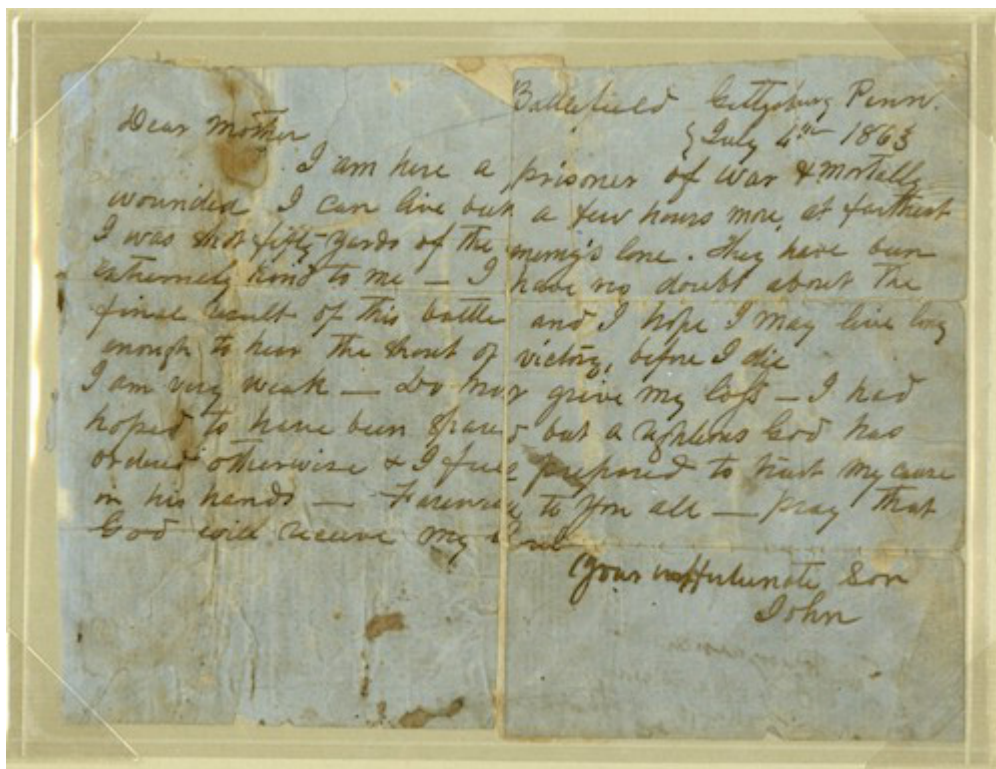 Battlefield Gettysburg Penn.
July 4th 1863
Dear Mother
I am here a prisoner of war & mortally
wounded I can live but a few hours more at farthest
I was shot fifty yards of the enemy's line. They have been
extremely kind to me — I have no doubt about the
final result of this battle and I hope I may live long
enough to hear the shout of victory, before I die
I am very weak — Do not grieve my loss — I had
hoped to have been spared but a righteous God has
ordered otherwise & I feel prepared to trust my case
in his hands — Farewell to you all — pray that
God will receive my soul
Your unfortunate Son
John